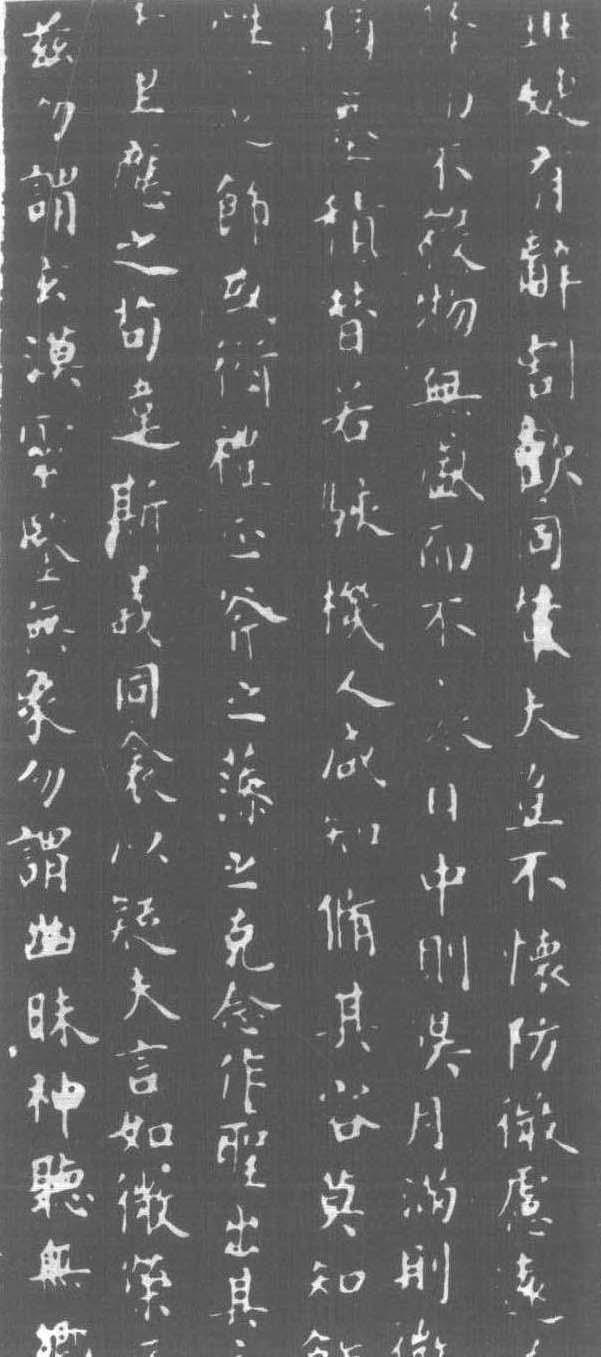 班婕有辭割歡同輦夫豈不懷防微慮遠
不殺物無盛而不衰日中則昃月滿則微
猶塵積替若駭機人咸知脩其容莫知飾
性之飾或愆禮正斧之藻之克念作聖出其
里應之苟違斯義同衾以疑夫言如微榮
茲勿謂玄漠靈鑒無象勿謂幽昧神聽無響